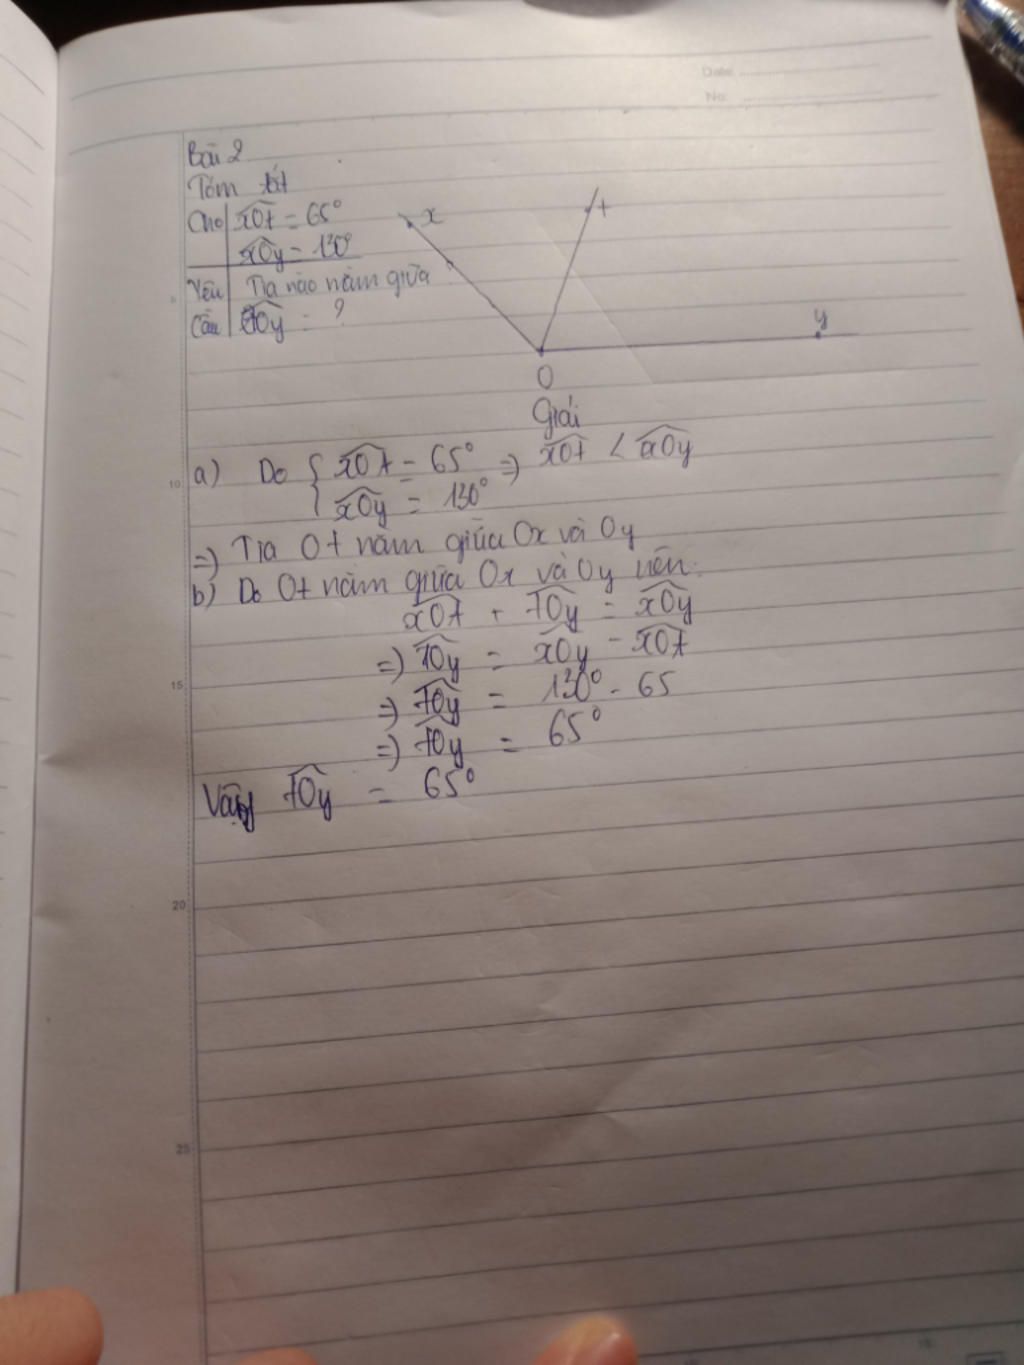 Date:
No:
Bài 2
Tóm tắt
Cho xOt = 65°
xOy = 130°
Yêu Tia nào nằm giữa
Cầu tOy = ?
x
t
y
O
Giải
a) Do { xOt = 65° => xOt < xOy
xOy = 130°
=) Tia Ot nằm giữa Ox và Oy
b) Do Ot nằm giữa Ox và Oy nên:
xOt + tOy = xOy
=) tOy = xOy - xOt
=) tOy = 130° - 65
=) tOy = 65°
Vậy tOy = 65°
10
15
20
25